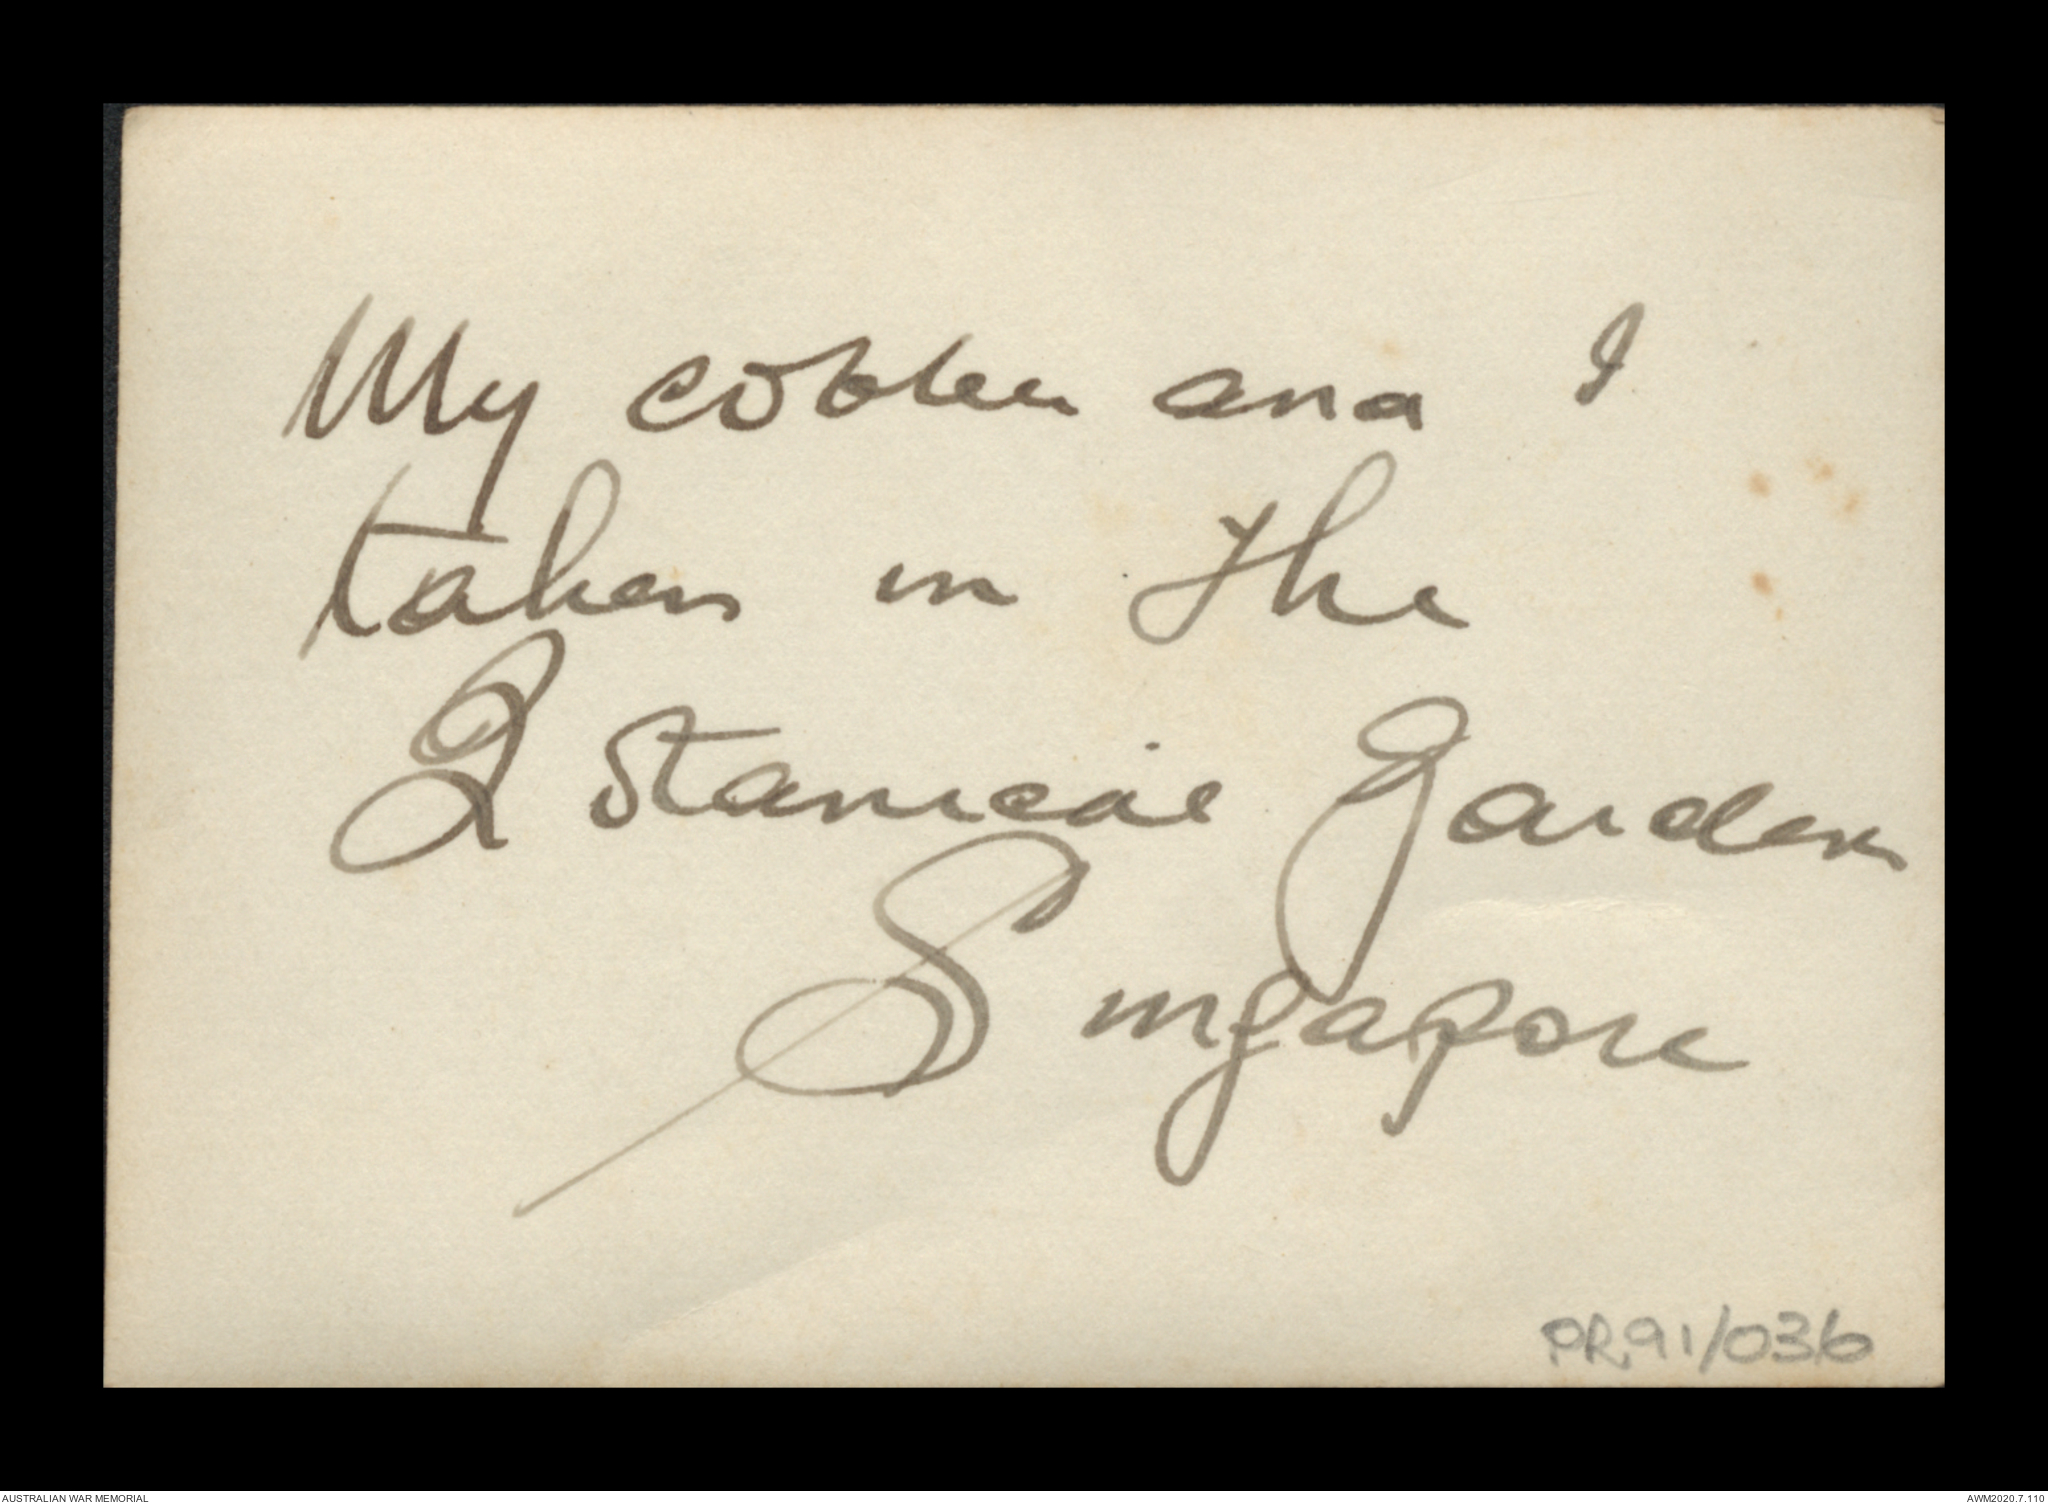 My cobber and I
taken in the
Botanical Gardens
Singapore
PR91/036
AUSTRALIAN WAR MEMORIAL
AWM2020.7.110